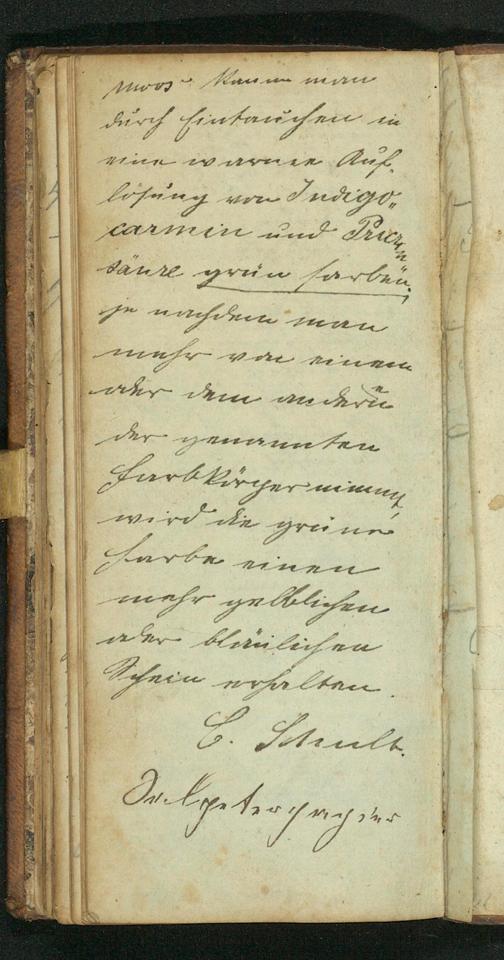 Moos kann man
durch Eintauchen in
eine warme Auf-
lösung von Indigo-
carmin und Picrin
säure grün färben,
je nachdem man
mehr von einem
oder dem anderen
der genannten
Farbkörper nimmt,
wird die grüne
Farbe einen
mehr gelblichen
oder bläulichen
Schein erhalten.
C. Schult.
Salpeterpapier